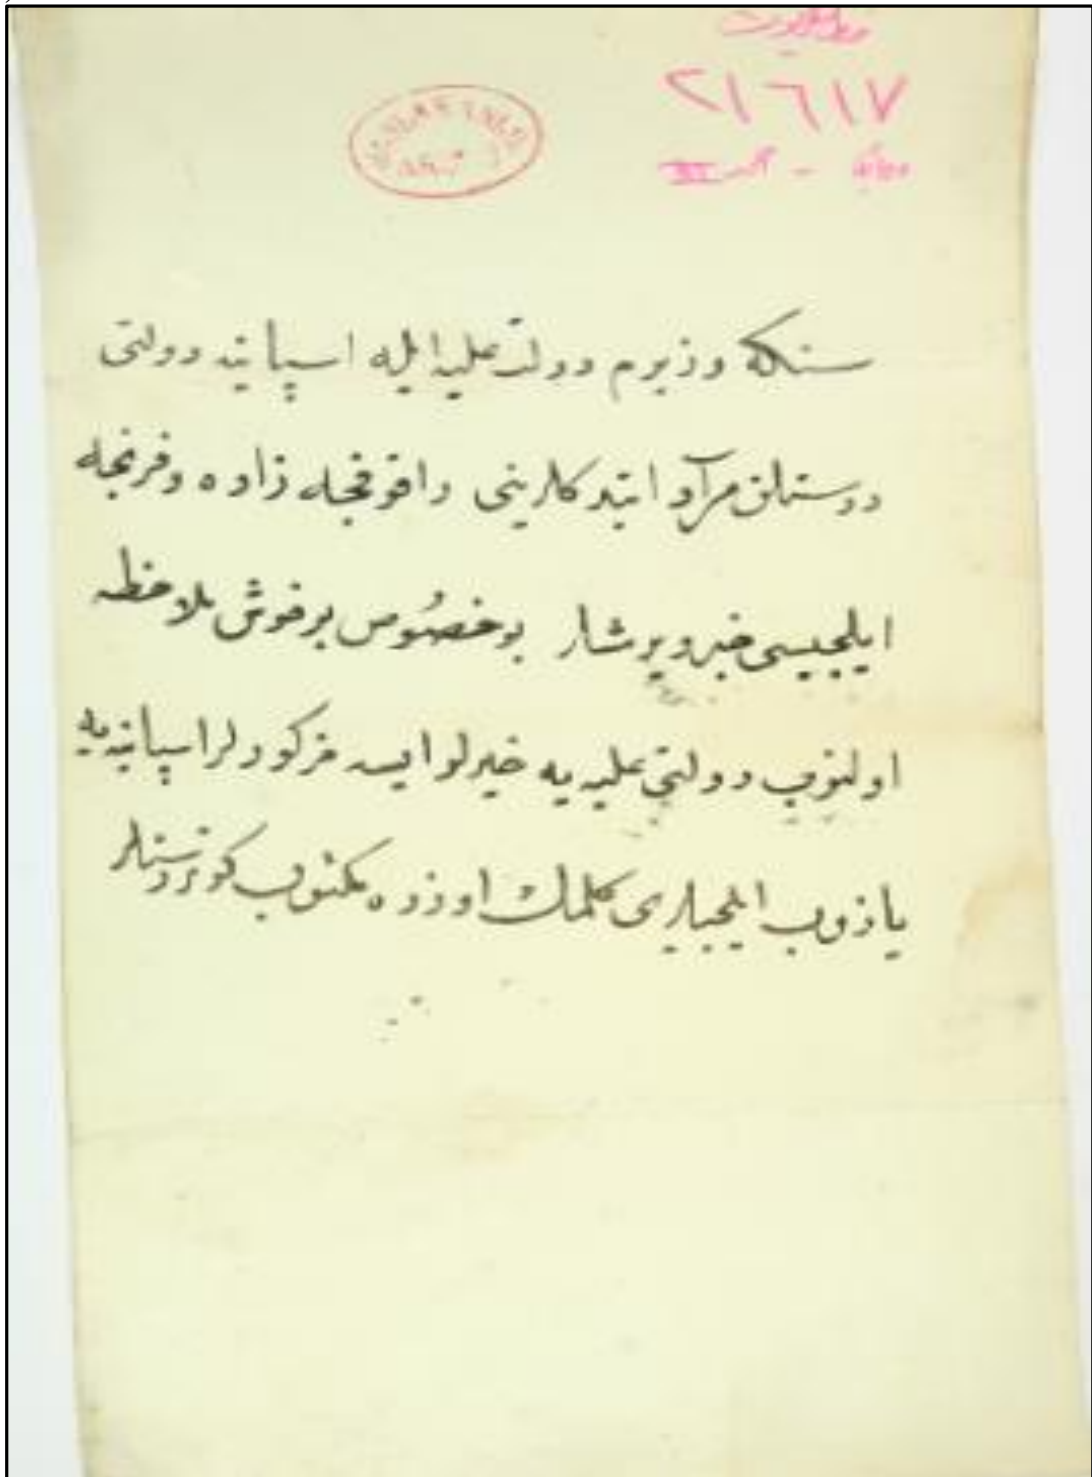 خط همايون
٢١٦١٧
سنكه وزيرم دولت عليه ايله اسپانيه دولتى
دوستلق مراد ايتدكلرينى راقوفجه زاده وفرنجه
ايلجيسى خبر ويرمشلر بو خصوص بر خوش ملاحظه
اولنوب دولتى عليه يه خيرلو ايسه مزكورلر اسپانيه يه
يازوب ايلجيلرى كلمك اوزره مكتوب كوندرسنلر